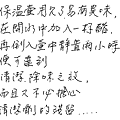 保溫壺用久了易有臭味,
在開水中加入一杯醋,
再倒入壺中靜置兩小時
便可達到
清潔、除味之效,
而且又不必擔心
清潔劑的殘留......